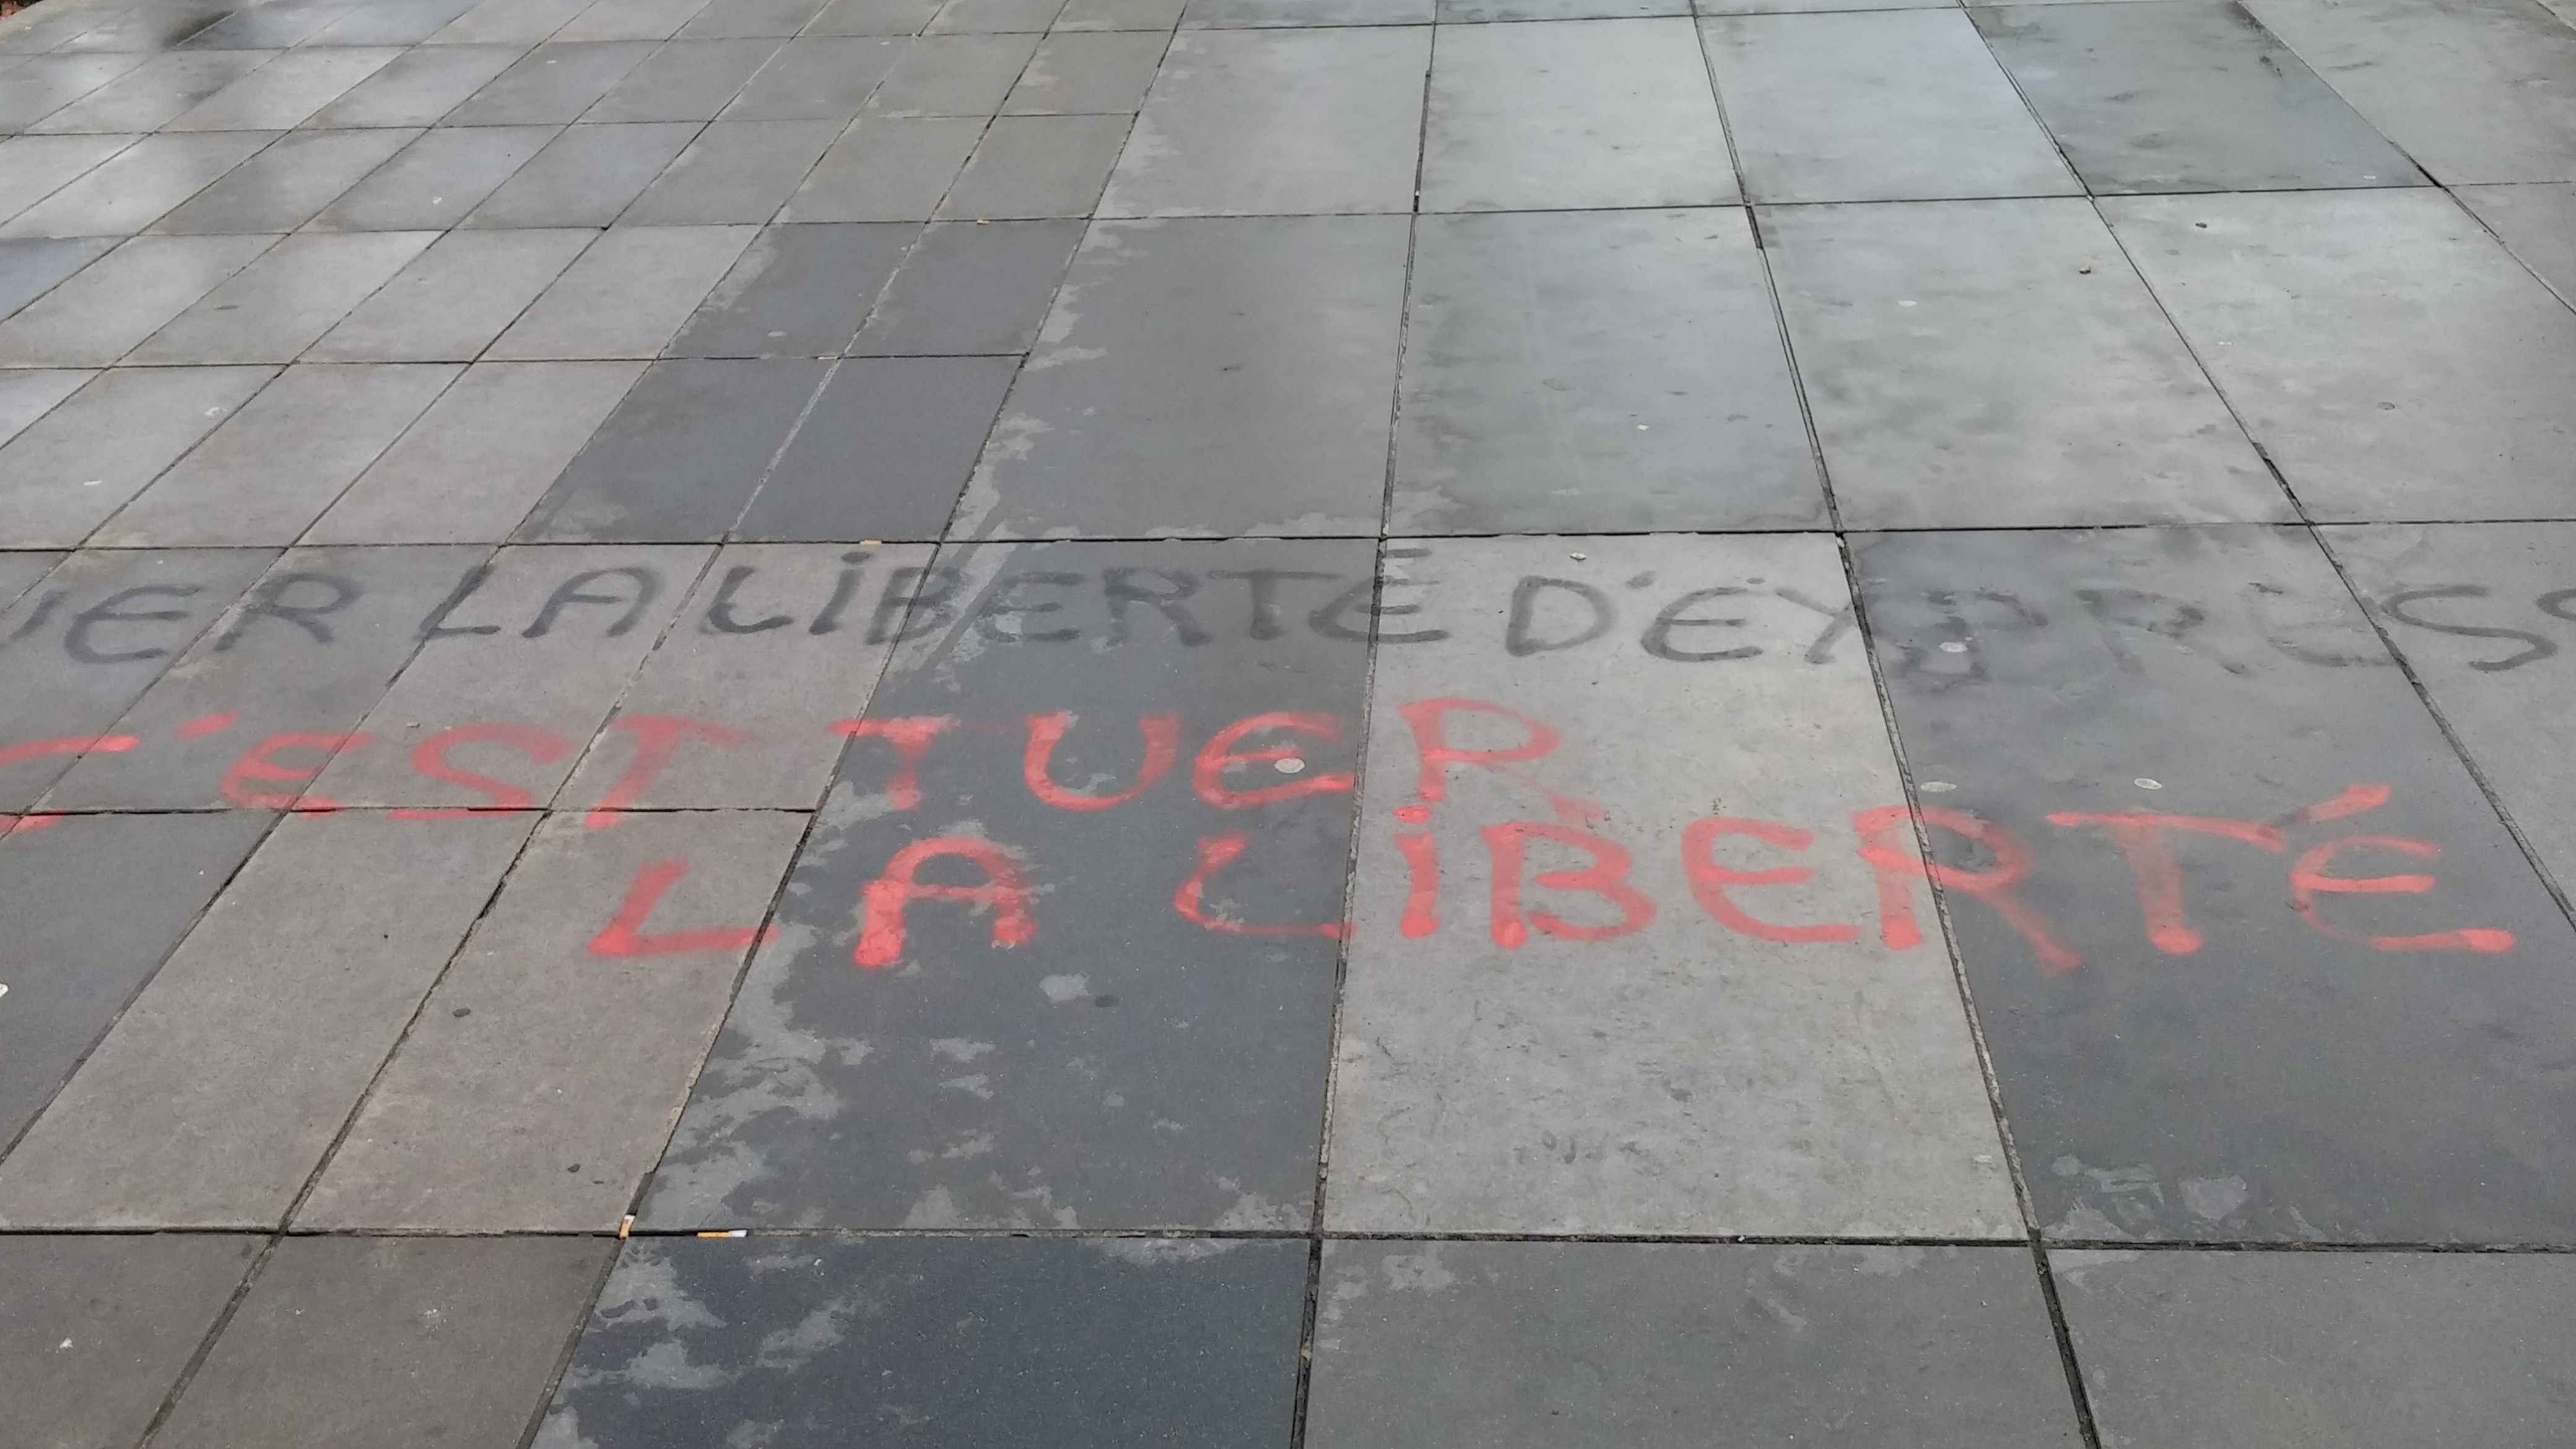 LA LiBERTÉ D'EXPRESS
C'EST TUER
LA LiBERTÉ